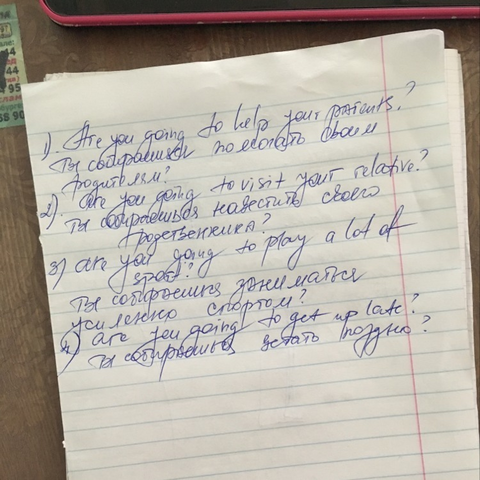 1). Are you going to help your parents?
Ты собираешься помогать своим
родителям?
2). Are you going to visit your relative?
Ты собираешься навестить своего
родственника?
3) Are you going to play a lot of
sport?
Ты собираешься заниматься
усиленно спортом?
4) Are you going to get up late?
Ты собираешься встать поздно?